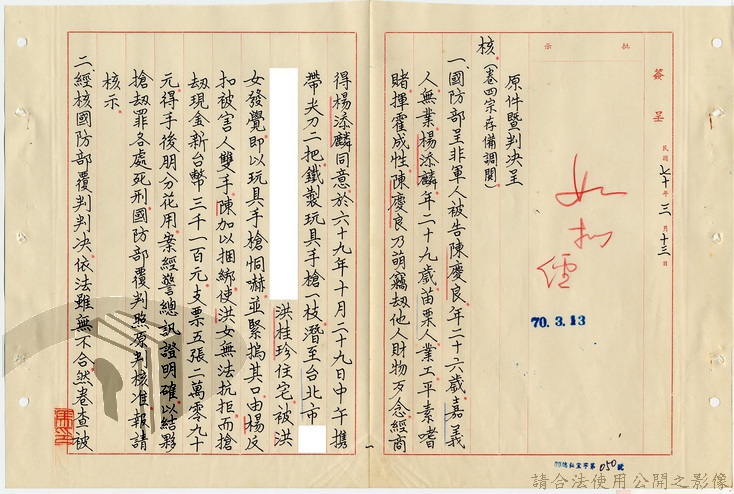 批示
簽呈 民國七十年三月十三日
如擬
經
70.3.13
原件暨判決呈
核(卷四宗存備調閱)
一、國防部呈非軍人被告陳慶良年二十六歲嘉義
人無業楊添麟年二十九歲苗栗人業工平素嗜
賭揮霍成性陳慶良乃萌竊劫他人財物歹念經商
得楊添麟同意於六十九年十月二十九日中午携
帶尖刀二把鐵製玩具手槍一枝潛至台北市
洪桂珍住宅被洪
女發覺即以玩具手槍恫嚇並緊摀其口由楊反
扣被害人雙手陳加以捆綁使洪女無法抗拒而搶
劫現金新台幣三千一百元支票五張二萬零九十
元得手後朋分花用案經警總訊證明確以結夥
搶劫罪各處死刑國防部覆判照原判核准報請
核示。
二、經核國防部覆判判決依法雖無不合然卷查被
一
050號
請合法使用公開之影像